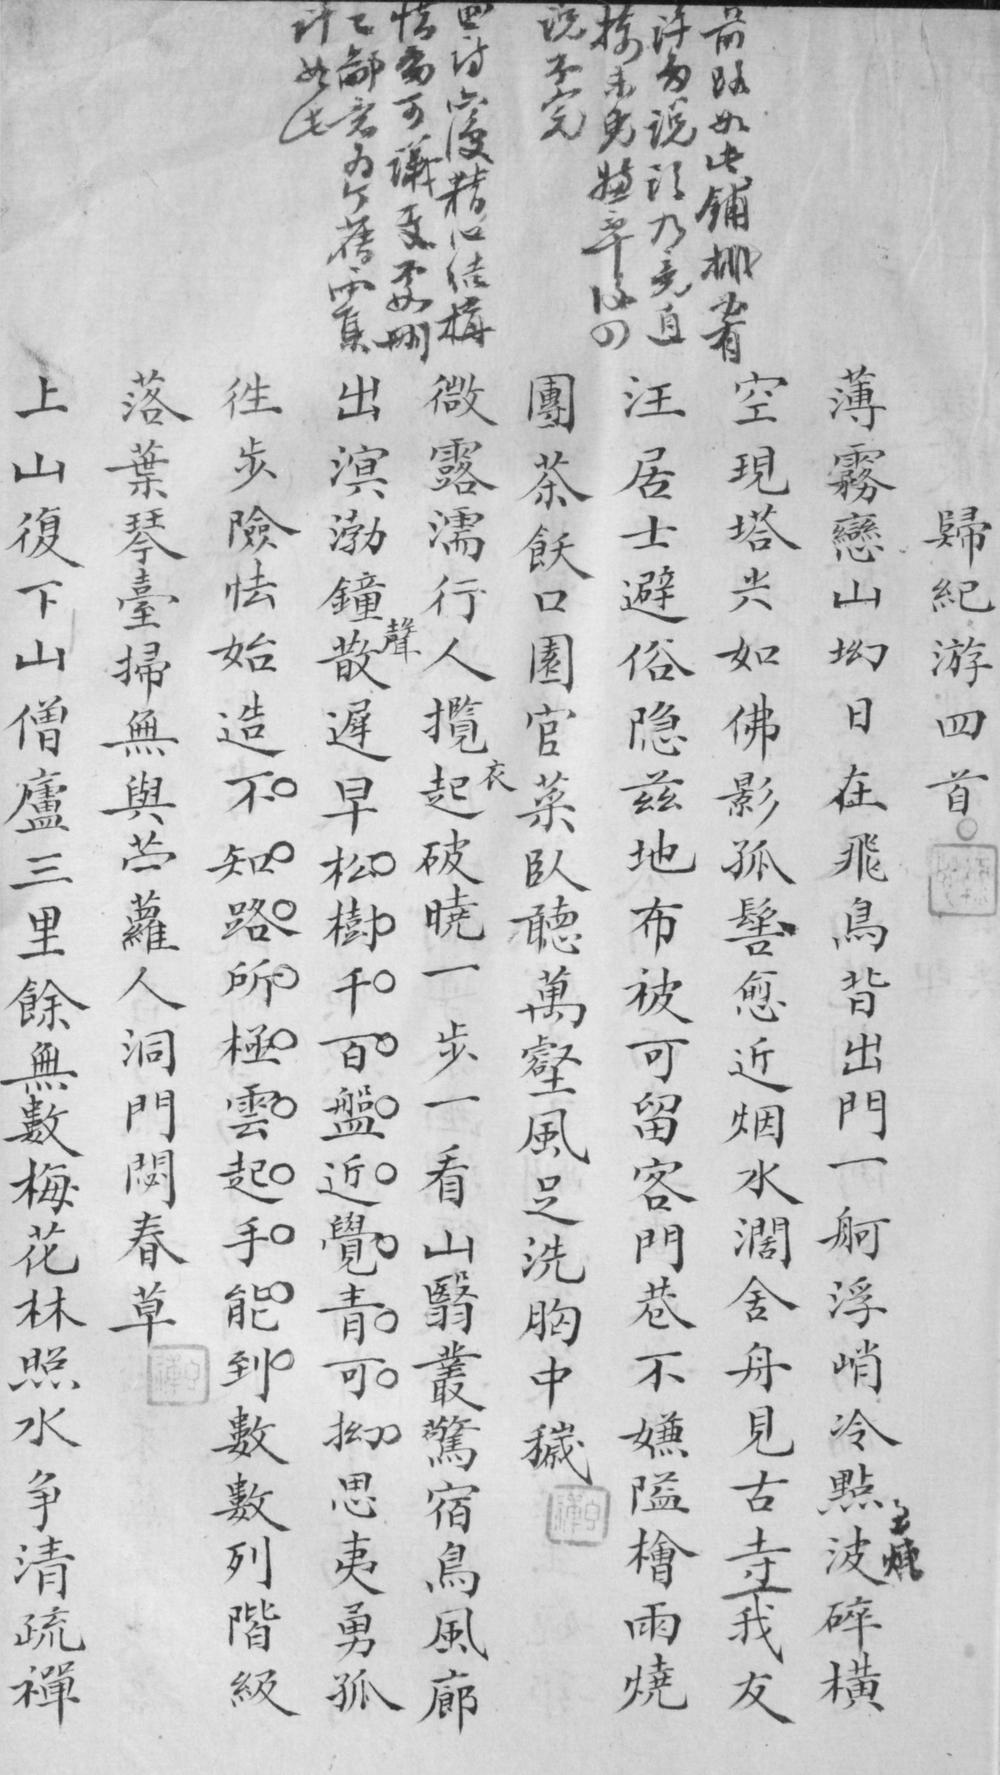 歸紀游四首
薄霧戀山坳日在飛鳥背出門一舸浮峭冷點波碎橫
空現塔尖如佛影孤髻愈近烟水濶舍舟見古寺我友
汪居士避俗隐兹地布被可留客門巷不嫌隘檜雨燒
團茶飫口園官菜臥聽萬壑風足洗胸中穢
微露濡行人攬衣起破曉一步一看山翳叢驚宿鳥風廊
出溟渤鐘聲散遲早松樹千百盤近覺青可拗思夷勇孤
徃步險怯始造不知路所極雲起手能到數數列階級
落葉琴臺掃無與苎蘿人洞門閟春草
上山復下山僧廬三里餘無數梅花林照水争清疏禪
前路如此鋪排者
許多說詁乃竟直
接未免草
說不完
四詩精心結構
惜可議更刪
已鄙意為
計如此